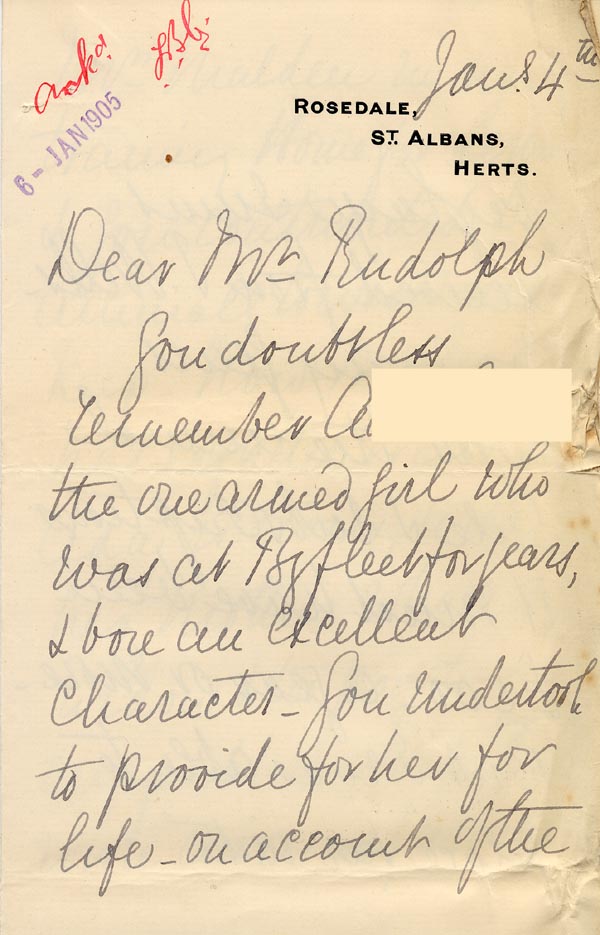 Ackd
6 - JAN 1905
Jany 4th
ROSEDALE,
ST. ALBANS,
HERTS.
Dear Mr Rudolph
You doubtless
remember A
the one armed girl who
was at Byfleet for years,
& bore an excellent
character - You undertook
to provide for her for
life - on account of the